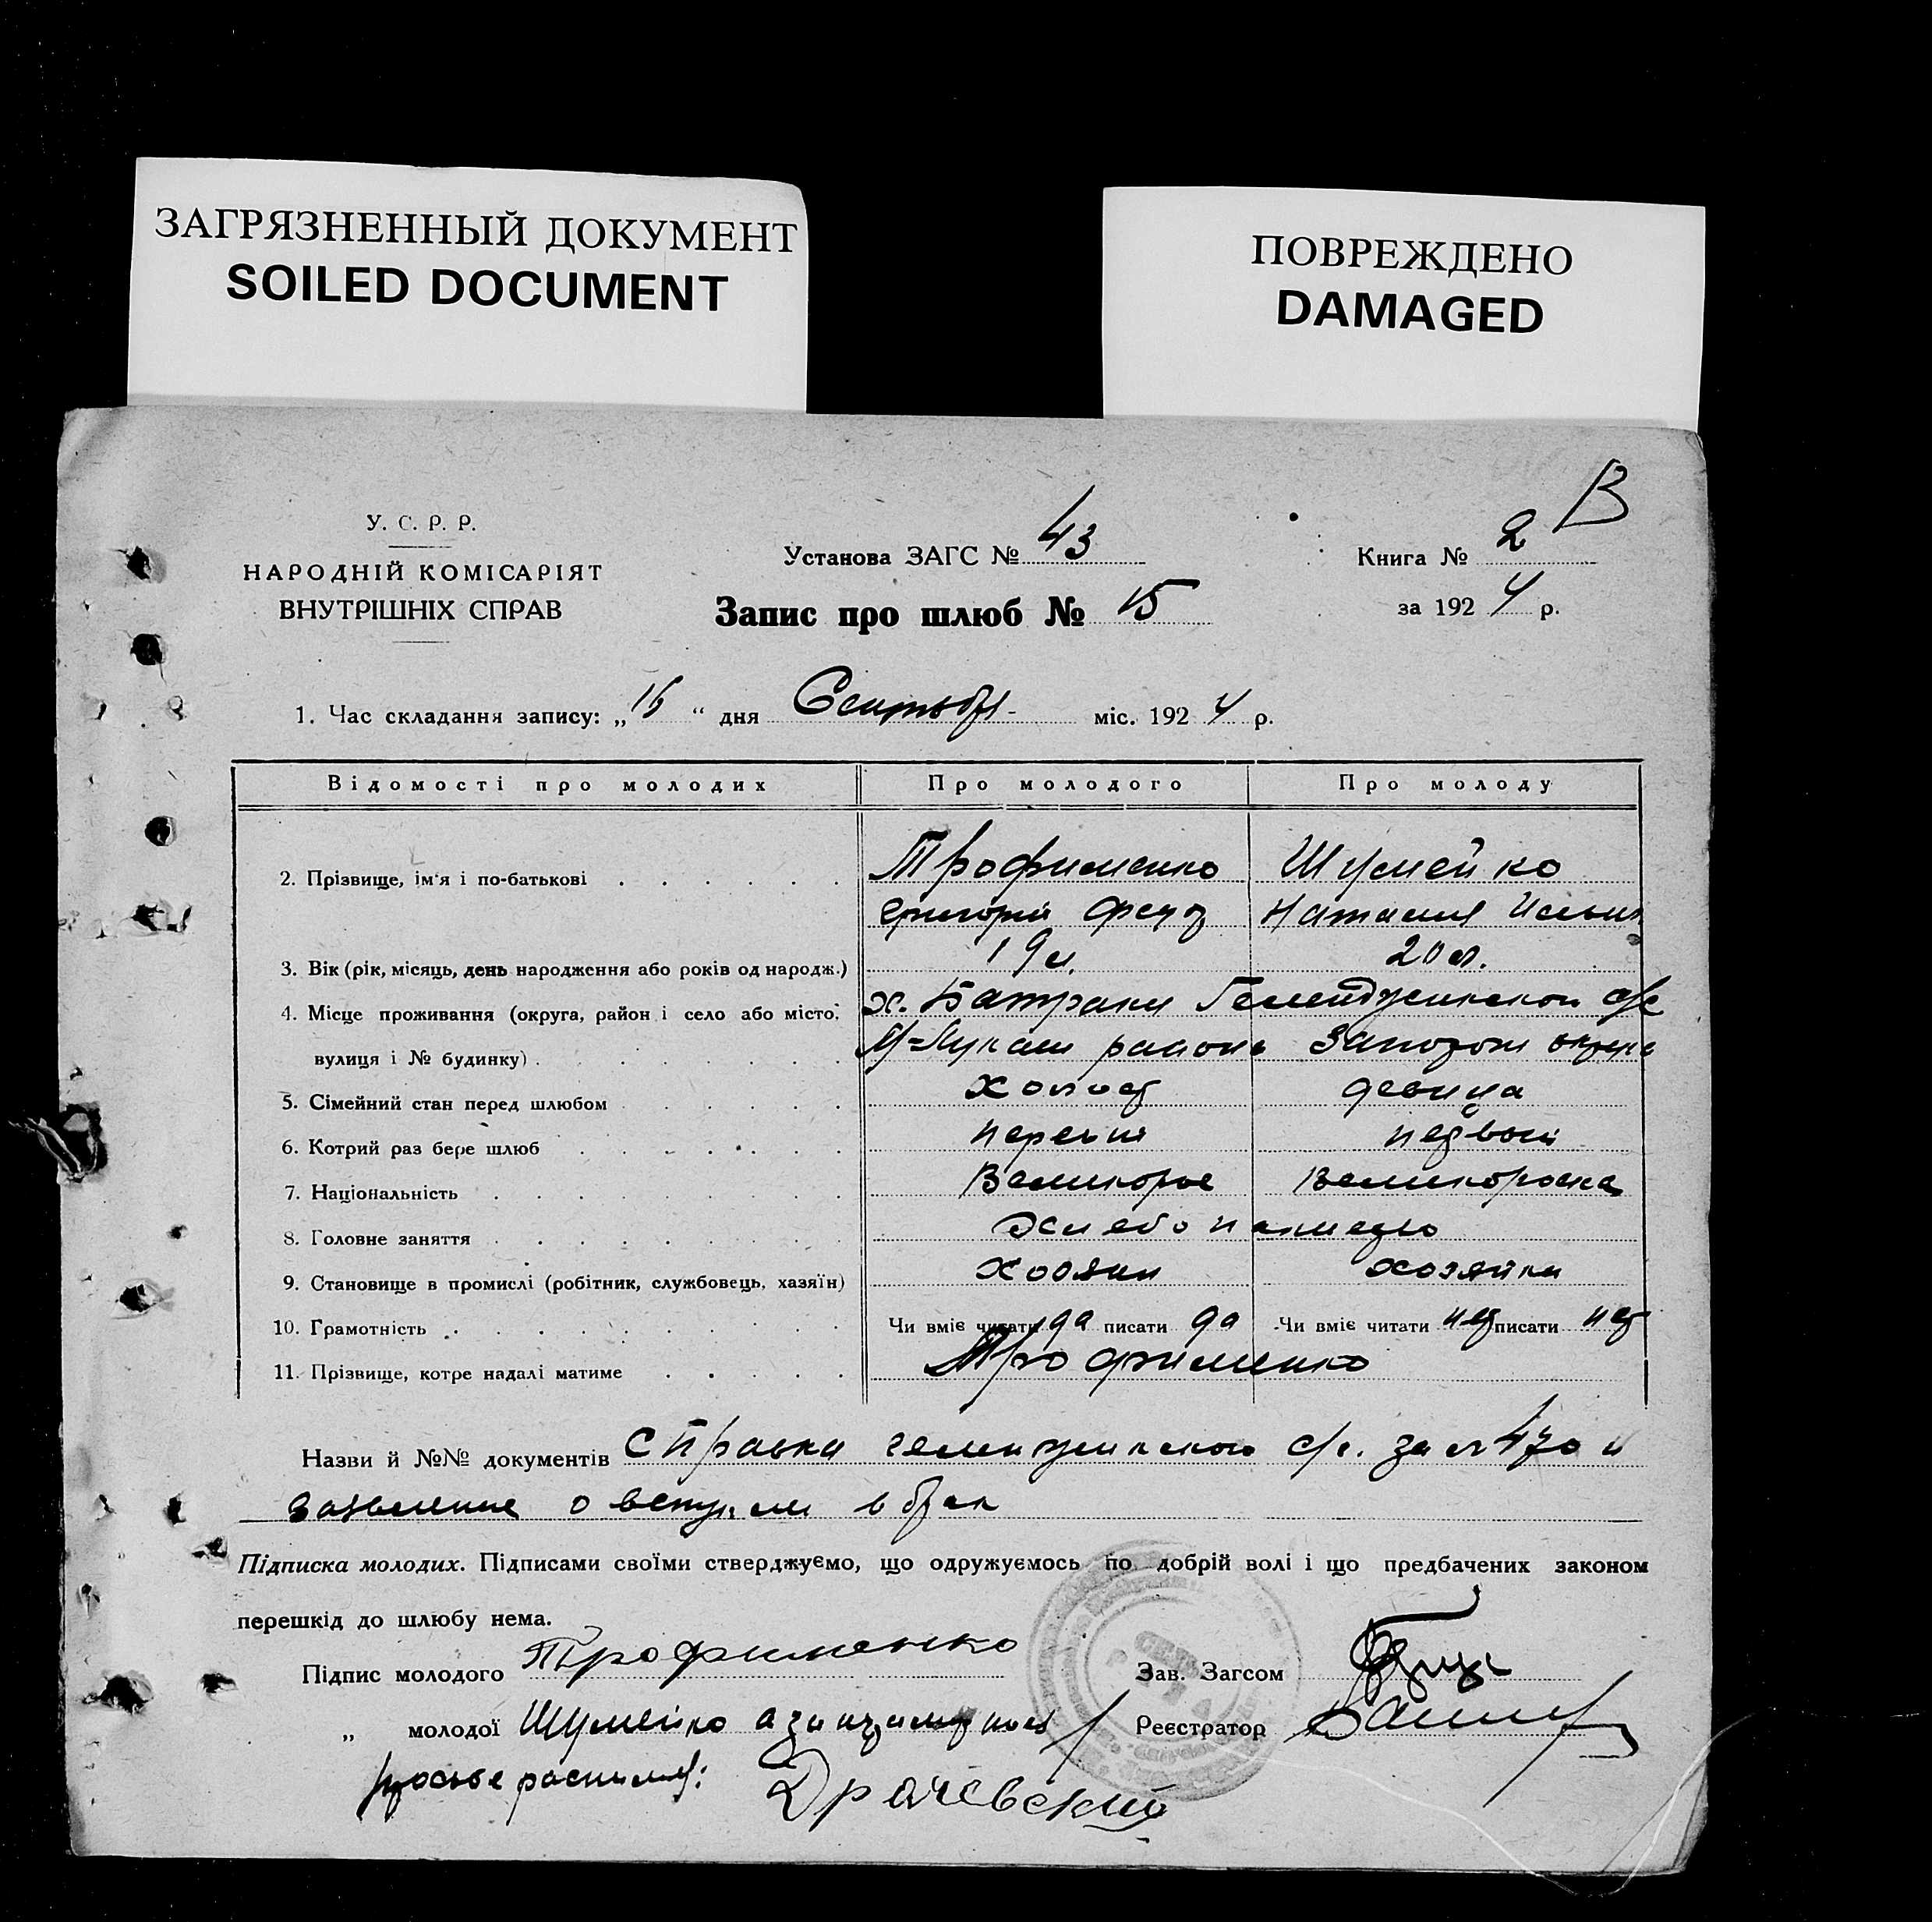 ЗАГРЯЗНЕННЫЙ ДОКУМЕНТ
SOILED DOCUMENT
ПОВРЕЖДЕНО
DAMAGED
В
У. С. Р. Р.
НАРОДНІЙ КОМІСАРІЯТ
ВНУТРІШНІХ СПРАВ
Установа ЗАГС № 43
Запис про шлюб № 15
Книга № 2
за 1924 р.
1. Час складання запису: „16“ дня Сентябр- міс. 1924 р.
Відомості про молодих Про молодого Про молоду
2. Прізвище, ім'я і по-батькові Трофименко Шумейко
Григорий Натал
3. Вік (рік, місяць, день народження або років од народж.) 19 л. 20 л.
4. Місце проживання (округа, район і село або місто, х. Батраки с/с
вулиця і № будинку) района Запорож округа
5. Сімейний стан перед шлюбом Холост девица
6. Котрий раз бере шлюб первый первый
7. Національність Великорос Великороска
8. Головне заняття Хлебопашество
9. Становище в промислі (робітник, службовець, хазяїн) Хозяин хозяйка
10. Грамотність Чи вміє читати да писати да Чи вміє читати нет писати нет
11. Прізвище, котре надалі матиме Трофименко
Назви й №№ документів Справка с/с. за № 470 и
заявление о вступлен в брак
Підписка молодих. Підписами своїми стверджуємо, що одружуємось по добрій волі і що предбачених законом
перешкід до шлюбу нема.
Підпис молодого Трофименко
Зав. Загсом
„ молодої Шумейко а за неграмотную
Реєстратор
просьбе росписался: Драчевский